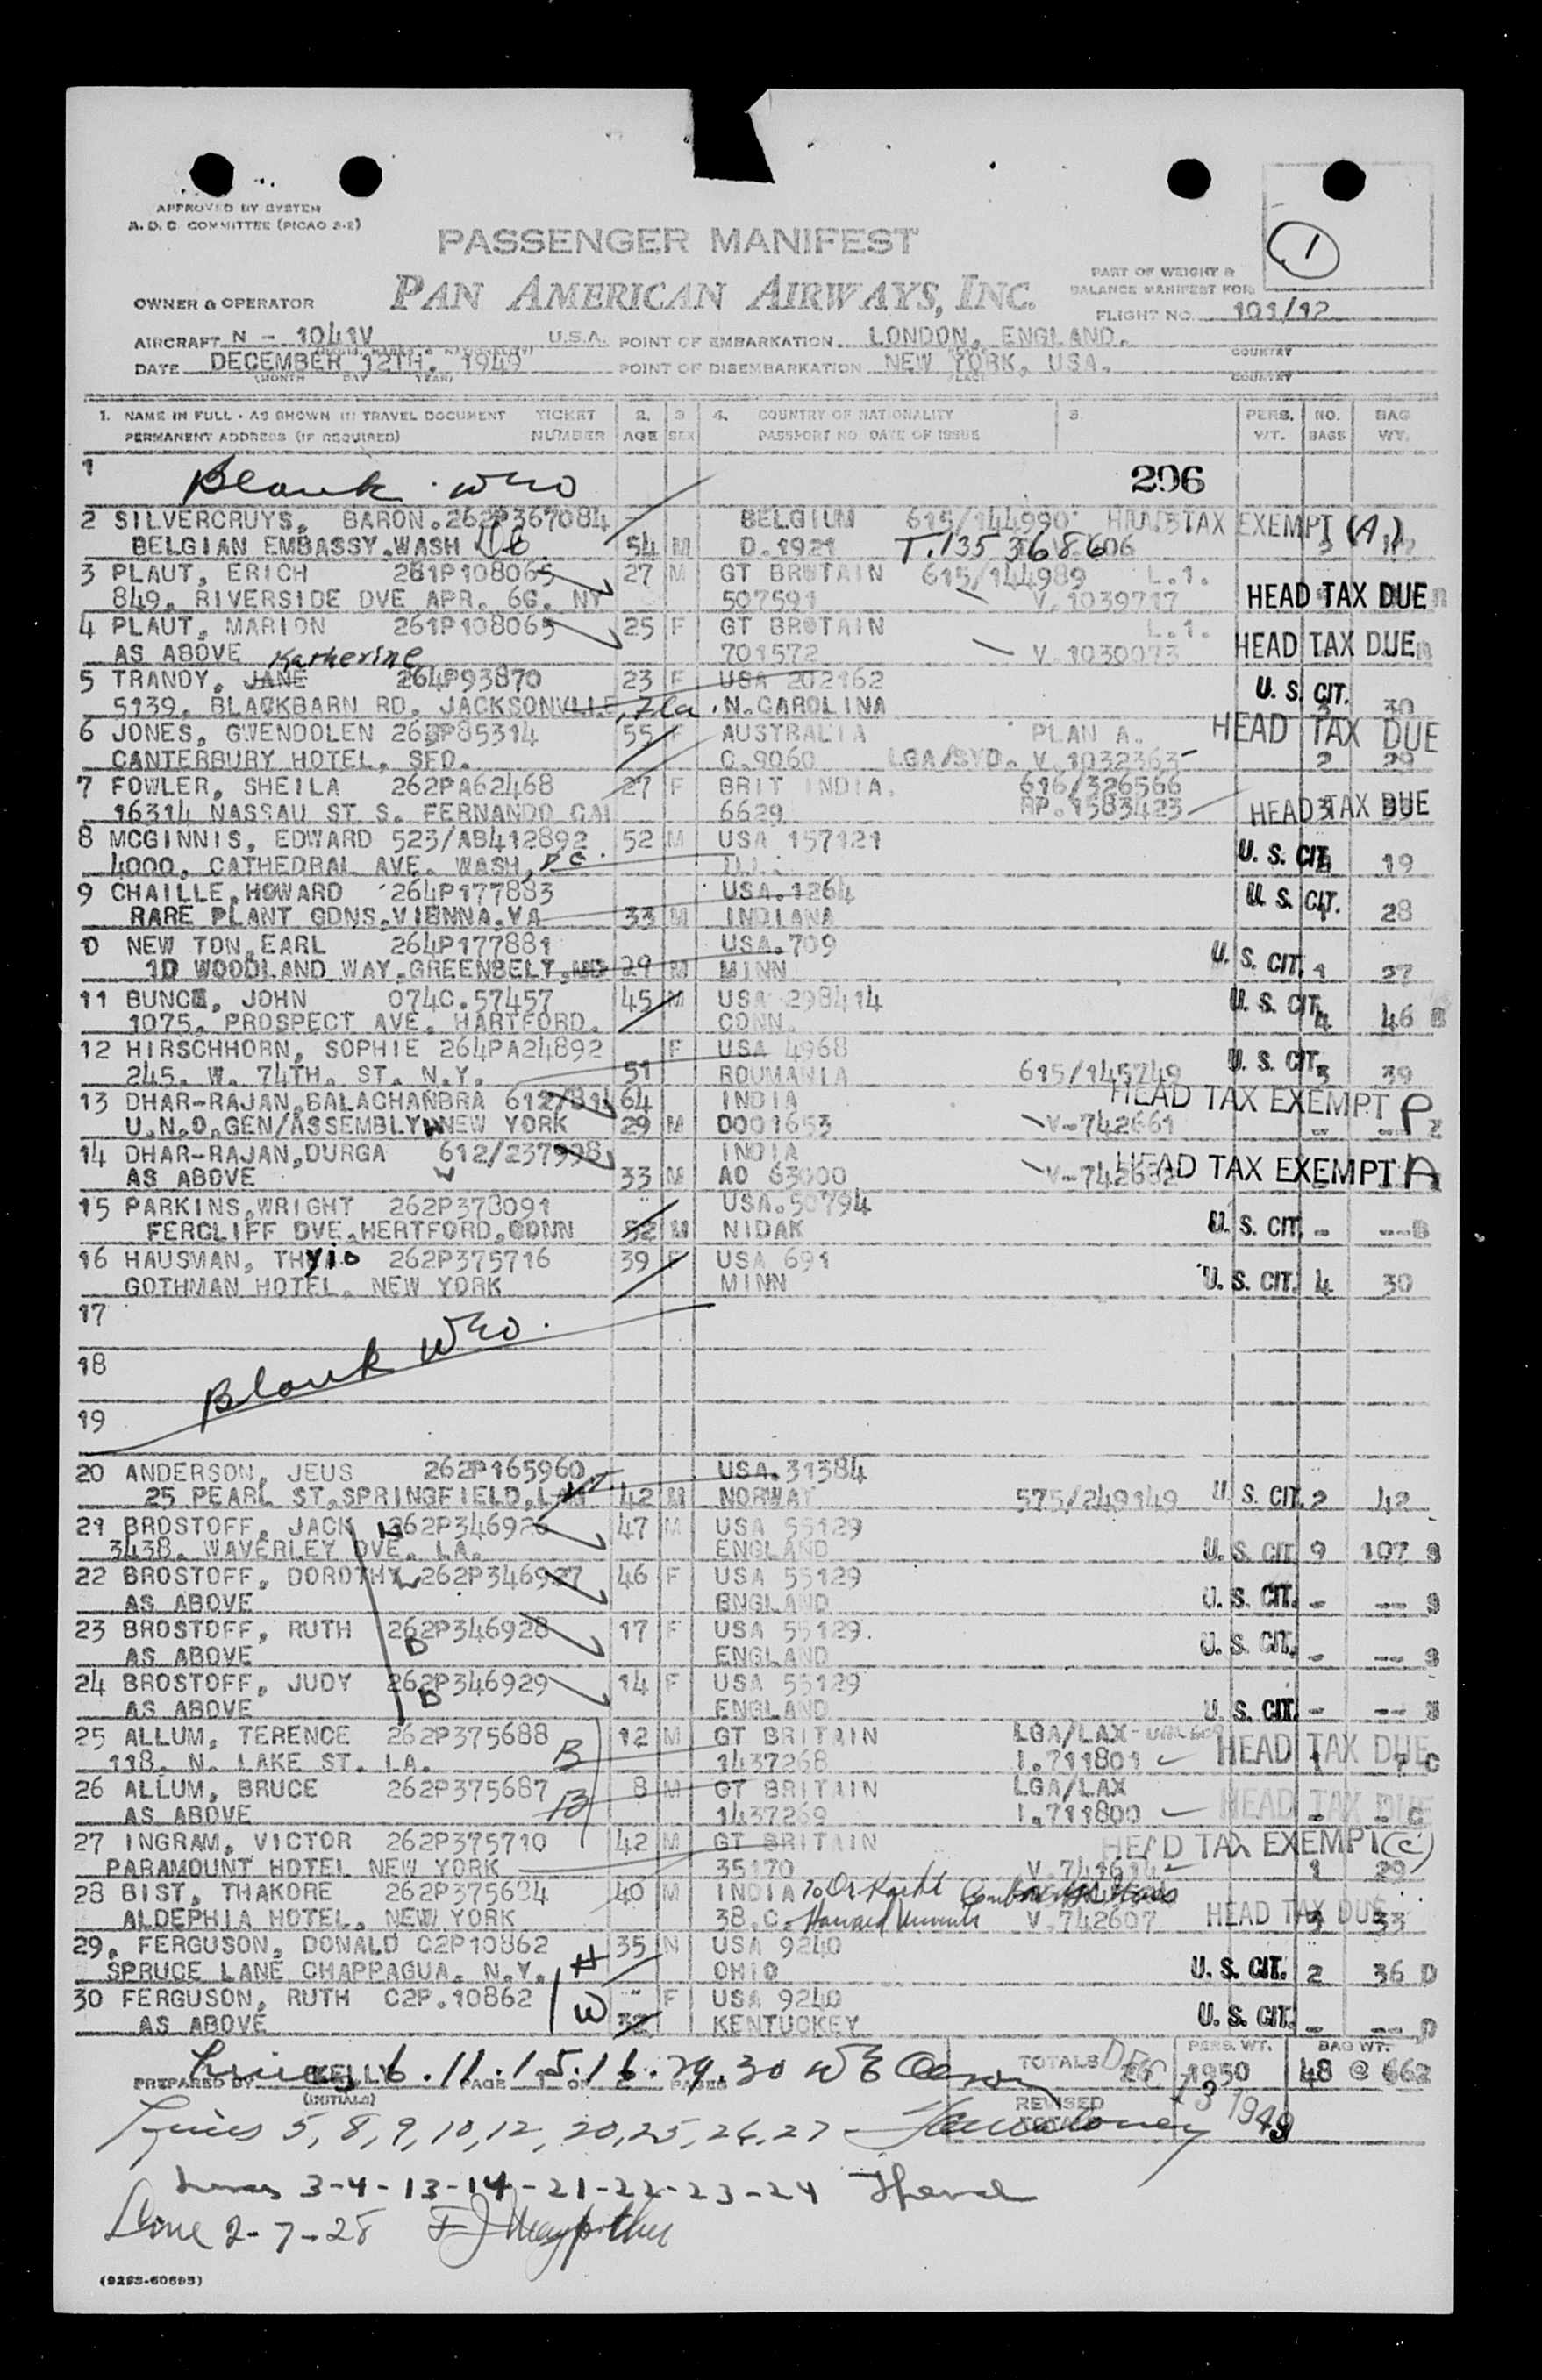 APPROVED BY SYSTEM
A. D. C. COMMITTEE (PICAO 2-2)
PASSENGER MANIFEST
1
PAN AMERICAN AIRWAYS, INC.
PART OF WEIGHT &
BALANCE MANIFEST FOR
OWNER & OPERATOR
FLIGHT NO. 101/12
AIRCRAFT N - 1041V U.S.A. POINT OF EMBARKATION LONDON, ENGLAND.
COUNTRY
DATE DECEMBER 12TH. 1949 POINT OF DISEMBARKATION NEW YORK, USA.
(MONTH DAY YEAR) (PLACE) COUNTRY
1. NAME IN FULL - AS SHOWN IN TRAVEL DOCUMENT TICKET 2. 3 4. COUNTRY OF NATIONALITY 5. PERS. NO. BAG
PERMANENT ADDRESS (IF REQUIRED) NUMBER AGE SEX PASSPORT NO. DATE OF ISSUE WT. BAGS WT.
1 Blank WEO 296
2 SILVERCRUYS, BARON. 262P367084 BELGIUM 615/144990 TAX EXEMPT (A)
BELGIAN EMBASSY.WASH 54 M D.1921 T.135 368606
3 PLAUT, ERICH 261P108065 27 M GT BRITAIN 615/144989 L.1.
849. RIVERSIDE DVE APR. 6G. NY 507591 V.1039717 HEAD TAX DUE
4 PLAUT, MARION 261P108065 25 F GT BROTAIN L.1.
AS ABOVE 701572 V.1030073 HEAD TAX DUE
Katherine
5 TRANDY, JANE 264P93870 23 F USA 202162 U.S. CIT.
5139. BLACKBARN RD. JACKSONVILLE, Fla. N.CAROLINA 30
6 JONES, GWENDOLEN 262P85314 55 F AUSTRALIA PLAN A. HEAD TAX DUE
CANTERBURY HOTEL, SFO. C.9060 LGA/SYD. V.1032363 2 29
7 FOWLER, SHEILA 262PA62468 27 F BRIT INDIA. 616/326566
16314 NASSAU ST S. FERNANDO CAL 6629 RP.1583423 HEAD TAX DUE
8 MCGINNIS, EDWARD 523/AB412892 52 M USA 157121 U.S. CIT.
4000. CATHEDRAL AVE. WASH, DC. ILL. 19
9 CHAILLE,HOWARD 264P177883 USA.1264 U.S. CIT.
RARE PLANT GDNS.VIENNA.VA 33 M INDIANA 28
10 NEW TON,EARL 264P177881 USA.709 U.S. CIT.
10 WOODLAND WAY,GREENBELT,MD 29 M MINN 1 37
11 BUNCE, JOHN 074C.57457 45 M USA 298414 U.S. CIT.
1075. PROSPECT AVE. HARTFORD. CONN. 4 46 B
12 HIRSCHHORN, SOPHIE 264PA24892 F USA 4968 U.S. CIT.
245. W. 74TH. ST. N.Y. 51 ROUMANIA 615/145749 3 39
13 DHAR-RAJAN,BALACHANBRA 612/81464 INDIA HEAD TAX EXEMPT
U.N.O.GEN/ASSEMBLY NEW YORK 29 M D001653 V-742661
14 DHAR-RAJAN,DURGA 612/237998 INDIA HEAD TAX EXEMPT A
AS ABOVE 33 M AD 63000 V-742662
15 PARKINS,WRIGHT 262P378091 USA.50794
FERCLIFF DVE.HERTFORD,CONN 52 M NIDAK U.S. CIT. - ---B
16 HAUSMAN, THyio 262P375716 39 F USA 691
GOTHMAN HOTEL, NEW YORK MINN U.S. CIT. 4 30
17
Blank WEO.
18
19
20 ANDERSON, JEUS 262P165960 USA.31384
25 PEARL ST,SPRINGFIELD, 42 M NORWAY 575/249149 U.S. CIT. 2 42
21 BROSTOFF, JACK H 262P346926 47 M USA 55129
3438. WAVERLEY DVE. LA. ENGLAND U.S. CIT 9 107 B
22 BROSTOFF, DOROTHY W 262P346927 46 F USA 55129
AS ABOVE ENGLAND U.S. CIT. - --- B
23 BROSTOFF, RUTH 262P346928 17 F USA 55129.
AS ABOVE D ENGLAND U.S. CIT. - --- B
24 BROSTOFF, JUDY 262P346929 14 F USA 55129
AS ABOVE D ENGLAND U.S. CIT. - --- B
25 ALLUM, TERENCE 262P375688 12 M GT BRITAIN LGA/LAX
118. N. LAKE ST. LA. B 1437268 I.711801 HEAD TAX DUE 1 7 C
26 ALLUM, BRUCE 262P375687 8 M GT BRITAIN LGA/LAX
AS ABOVE B 1437269 I.711800 HEAD TAX DUE - - C
27 INGRAM, VICTOR 262P375710 42 M GT BRITAIN HEAD TAX EXEMPT (C)
PARAMOUNT HOTEL NEW YORK 35170 V.741614 1 29
28 BIST, THAKORE 262P375684 40 M INDIA
ALDEPHIA HOTEL, NEW YORK 38.C. V.742607 HEAD TAX DUE 3 33
29. FERGUSON, DONALD C2P10862 35 M USA 9240
SPRUCE LANE CHAPPAGUA. N.Y. H OHIO U.S. CIT. 2 36 D
30 FERGUSON, RUTH C2P.10862 W F USA 9240
AS ABOVE 32 KENTUCKEY U.S. CIT. - --- D
Lines 6.11.15.16.29.30 WE Olson
PREPARED BY KELLY PAGE 1 OF PAGES TOTALS 26 PERS. WT. 1950 BAG WT. 48 @ 662
(INITIALS) REVISED
DEC 13 1949
Lines 5,8,9,10,12,20,25,26,27
Lines 3-4-13-14-21-22-23-24
Line 2-7-28
(9293-60693)